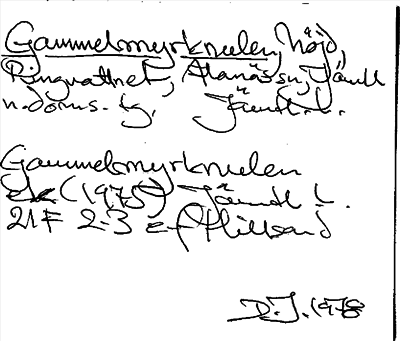 Gammelmyrknulen, höjd,
Ringvattnet, Alanäs sn, Jämtl
n. doms. tg. Jämtl. l.
Gammelmyrknulen
ek (1975) Jämtl l.
21F 2-3 e-f
D.J. 1978